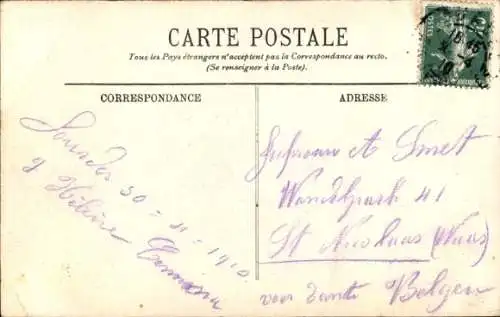 CARTE POSTALE
Tous les Pays étrangers n'acceptent pas la Correspondance au recto.
(Se renseigner à la Poste).
CORRESPONDANCE
ADRESSE
Lourdes
30 - 11 - 1910
Hélène
Jufvrouw A Smet
41
St Nicolaas (Waas)
voor tante Belgen